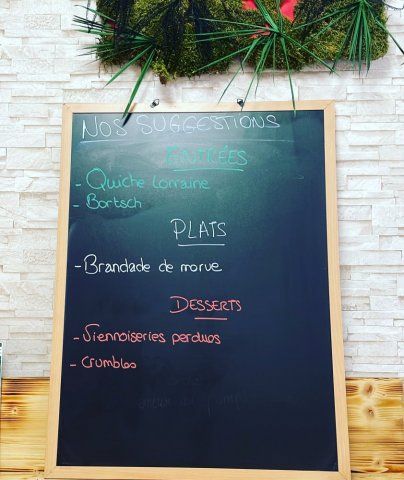 NOS SUGGESTIONS
ENTRÉES
- Quiche Lorraine
- Bortsch
PLATS
- Brandade de morue
DESSERTS
- Viennoiseries perdues
- Crumbles